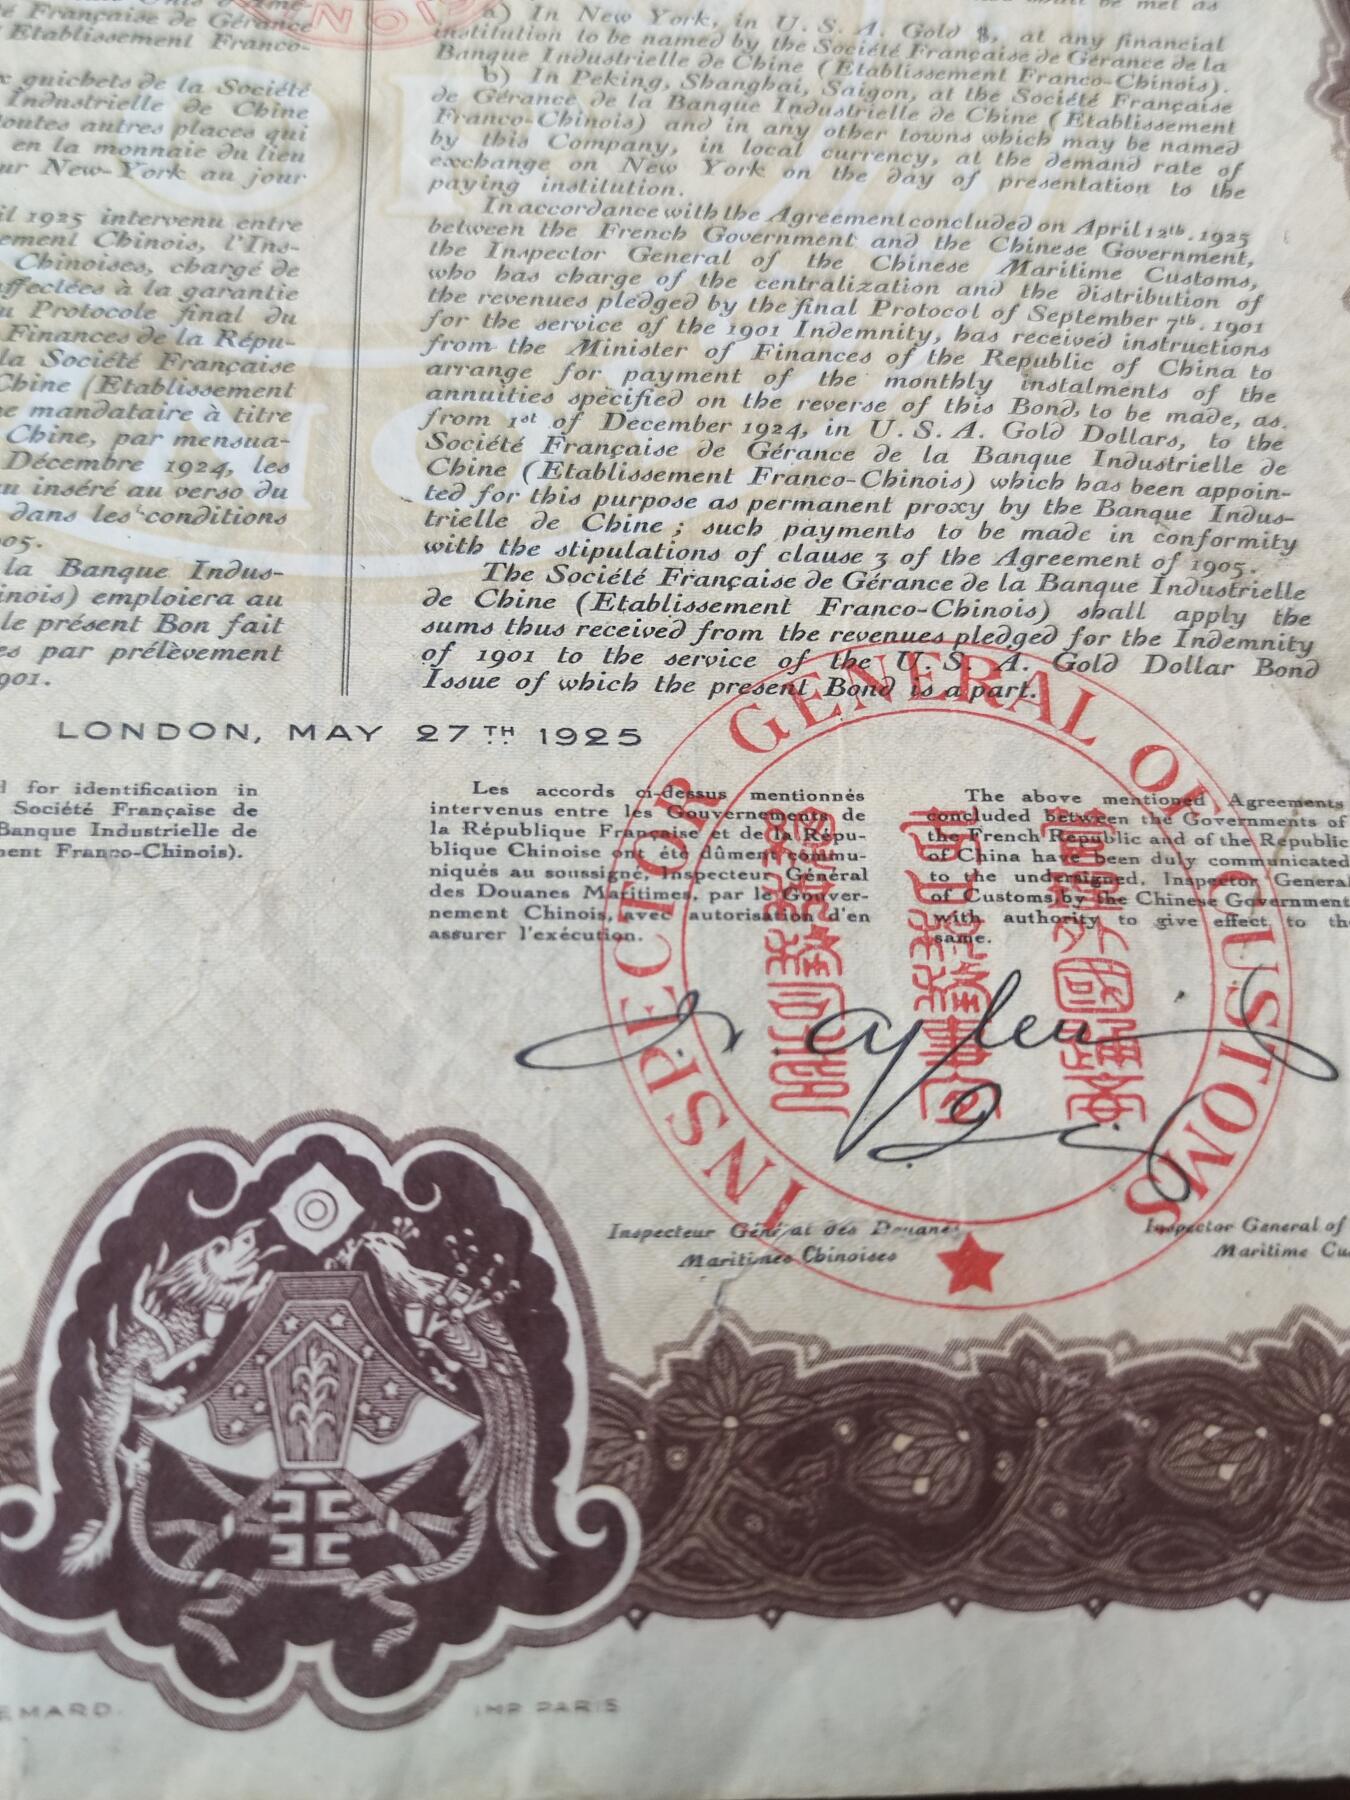 à) In New York, in U.S.A. Gold $, at any financial
institution to be named by the Société Française de Gérance de la
Banque Industrielle de Chine (Etablissement Franco-Chinois).
b) In Peking, Shanghai, Saigon, at the Société Française
de Gérance de la Banque Industrielle de Chine (Etablissement
Franco-Chinois) and in any other towns which may be named
by this Company, in local currency, at the demand rate of
exchange on New York on the day of presentation to the
paying institution.
In accordance with the Agreement concluded on April 12th. 1925
between the French Government and the Chinese Government,
the Inspector General of the Chinese Maritime Customs,
who has charge of the centralization and the distribution of
the revenues pledged by the final Protocol of September 7th. 1901
for the service of the 1901 Indemnity, has received instructions
from the Minister of Finances of the Republic of China to
arrange for payment of the monthly instalments of the
annuities specified on the reverse of this Bond, to be made, as.
from 1st of December 1924, in U.S.A. Gold Dollars, to the
Société Française de Gérance de la Banque Industrielle de
Chine (Etablissement Franco-Chinois) which has been appoin-
ted for this purpose as permanent proxy by the Banque Indus-
trielle de Chine ; such payments to be made in conformity
with the stipulations of clause 3 of the Agreement of 1905.
The Société Française de Gérance de la Banque Industrielle
de Chine (Etablissement Franco-Chinois) shall apply the
sums thus received from the revenues pledged for the Indemnity
of 1901 to the service of the U.S.A. Gold Dollar Bond
Issue of which the present Bond is a part.
Gérance
Etablissement Franco-
guichets de la Société
Industrielle de Chine
toutes autres places qui
en la monnaie du lieu
ur New-York au jour
il 1925 intervenu entre
ement Chinois, l'Ins-
Chinoises, chargé de
affectées à la garantie
u Protocole final du
Finances de la Répu-
la Société Française
Chine (Etablissement
e mandataire à titre
Chine, par mensua-
Décembre 1924, les
u inséré au verso du
dans les conditions
05.
la Banque Indus-
inois) emploiera au
le présent Bon fait
es par prélèvement
901.
LONDON, MAY 27TH 1925
d for identification in
Société Française de
Banque Industrielle de
ment Franco-Chinois).
Les accords ci-dessus mentionnés
intervenus entre les Gouvernements de
la République Française et de la Répu-
blique Chinoise ont été dûment commu-
niqués au soussigné, Inspecteur Général
des Douanes Maritimes, par le Gouver-
nement Chinois, avec autorisation d'en
assurer l'exécution.
The above mentioned Agreements
concluded between the Governments of
the French Republic and of the Republic
of China have been duly communicated
to the undersigned, Inspector General
of Customs by the Chinese Government
with authority to give effect to the
same.
INSPECTOR GENERAL OF CUSTOMS
Inspecteur Général des Douanes
Maritimes Chinoises
Inspector General of
Maritime Cu
EMARD. IMP PARIS